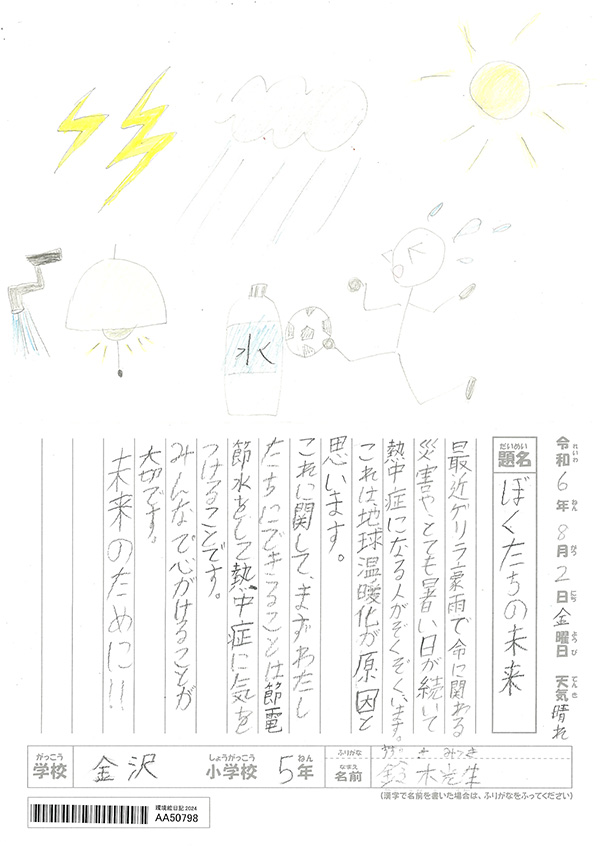 水
令和6年8月2日金曜日 天気晴れ
れいわ ねん がつ にち ようび てんき
だいめい
題名
ぼくたちの未来
最近ゲリラ豪雨で命に関わる
災害や、とても暑い日が続いて
熱中症になる人がぞくぞくいます。
これは地球温暖化が原因と
思います。
これに関して、まずわたし
たちにできることは節電
節水をして熱中症に気を
つけることです。
みんなで心がけることが
大切です。
未来のために!!
がっこう しょうがっこう ねん
学校 金沢 小学校 5年
ふりがな みつき
なまえ
名前 木光生
(漢字で名前を書いた場合は、ふりがなをふってください)
環境絵日記2024
AA50798